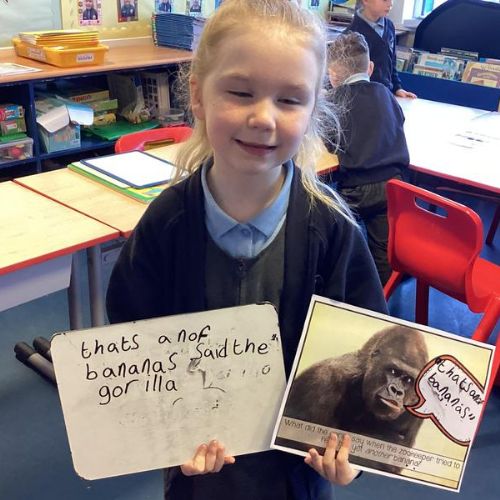 thats anof
bananas said the"
gorilla
"thats anof
bananas"
What did the gorilla say when the zookeeper tried to
yet another banana?